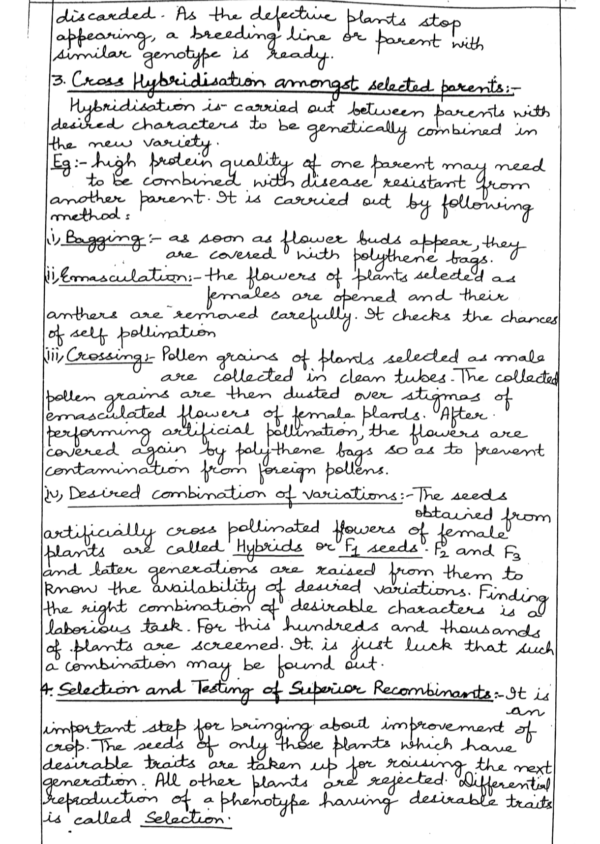 discarded. As the defective plants stop
appearing, a breeding line or parent with
similar genotype is ready.
3. Cross Hybridisation amongst selected parents:-
Hybridisation is carried out between parents with
desired characters to be genetically combined in
the new variety.
Eg:- high protein quality of one parent may need
to be combined with disease resistant from
another parent. It is carried out by following
method:
i) Bagging:- as soon as flower buds appear, they
are covered with polythene bags.
ii) Emasculation:- the flowers of plants selected as
females are opened and their
anthers are removed carefully. It checks the chances
of self pollination
iii) Crossing:- Pollen grains of plants selected as male
are collected in clean tubes. The collected
pollen grains are then dusted over stigmas of
emasculated flowers of female plants. After
performing artificial pollination, the flowers are
covered again by polythene bags so as to prevent
contamination from foreign pollens.
iv) Desired combination of variations:- The seeds
obtained from
artificially cross pollinated flowers of female
plants are called Hybrids or F1 seeds. F2 and F3
and later generations are raised from them to
know the availability of desired variations. Finding
the right combination of desirable characters is a
laborious task. For this hundreds and thousands
of plants are screened. It is just luck that such
a combination may be found out.
4. Selection and Testing of Superior Recombinants:- It is
an
important step for bringing about improvement of
crop. The seeds of only those plants which have
desirable traits are taken up for raising the next
generation. All other plants are rejected. Differential
reproduction of a phenotype having desirable traits
is called Selection.